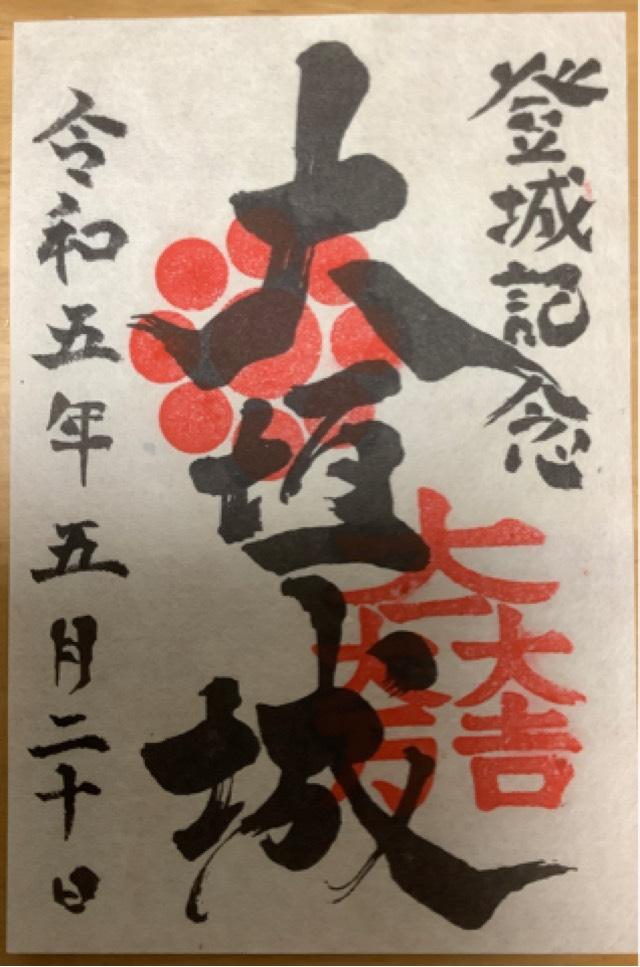 登城記念
大垣城
大一大万大吉
令和五年五月二十日